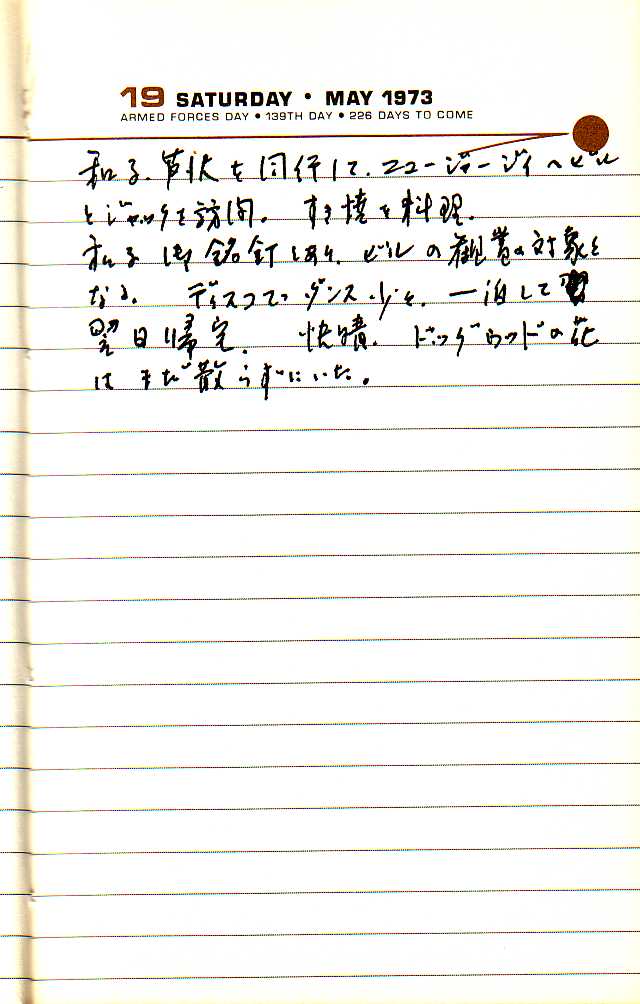 19 SATURDAY • MAY 1973
ARMED FORCES DAY • 139TH DAY • 226 DAYS TO COME
和子、を同行して、ニュージャージイへビル
とジャックを訪問。すき焼を料理。
和子は銘釘し、ビルの観賞の対象と
なる。ディスコでダンス少々。一泊して
翌日帰宅。快晴。ドッグウッドの花
はまだ散らずにいた。